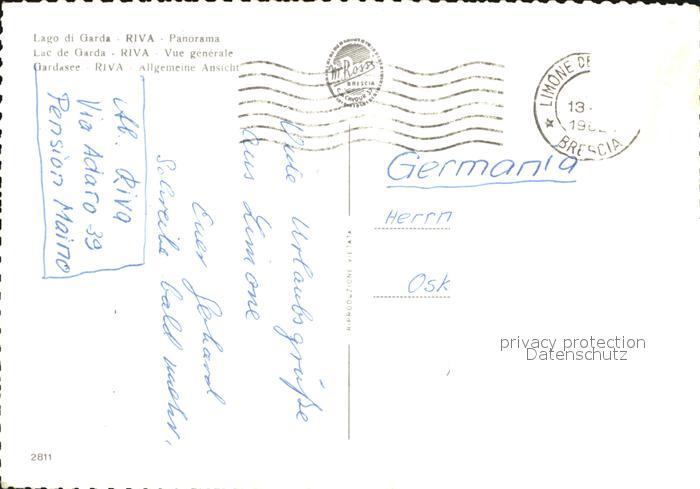 Lago di Garda - RIVA - Panorama
Lac de Garda - RIVA - Vue générale
Gardasee - RIVA - Allgemeine Ansicht
M. Rossi
BRESCIA
LIMONE DE
13.
BRESCIA
Ab. Riva
Via Adaro 39
Pension Maino
Viele Urlaubsgrüße
aus Limone
Euer Gerhard
Schreibe bald mehr.
RIPRODUZIONE VIETATA
Germania
Herrn
Osk
privacy protection
Datenschutz
2811